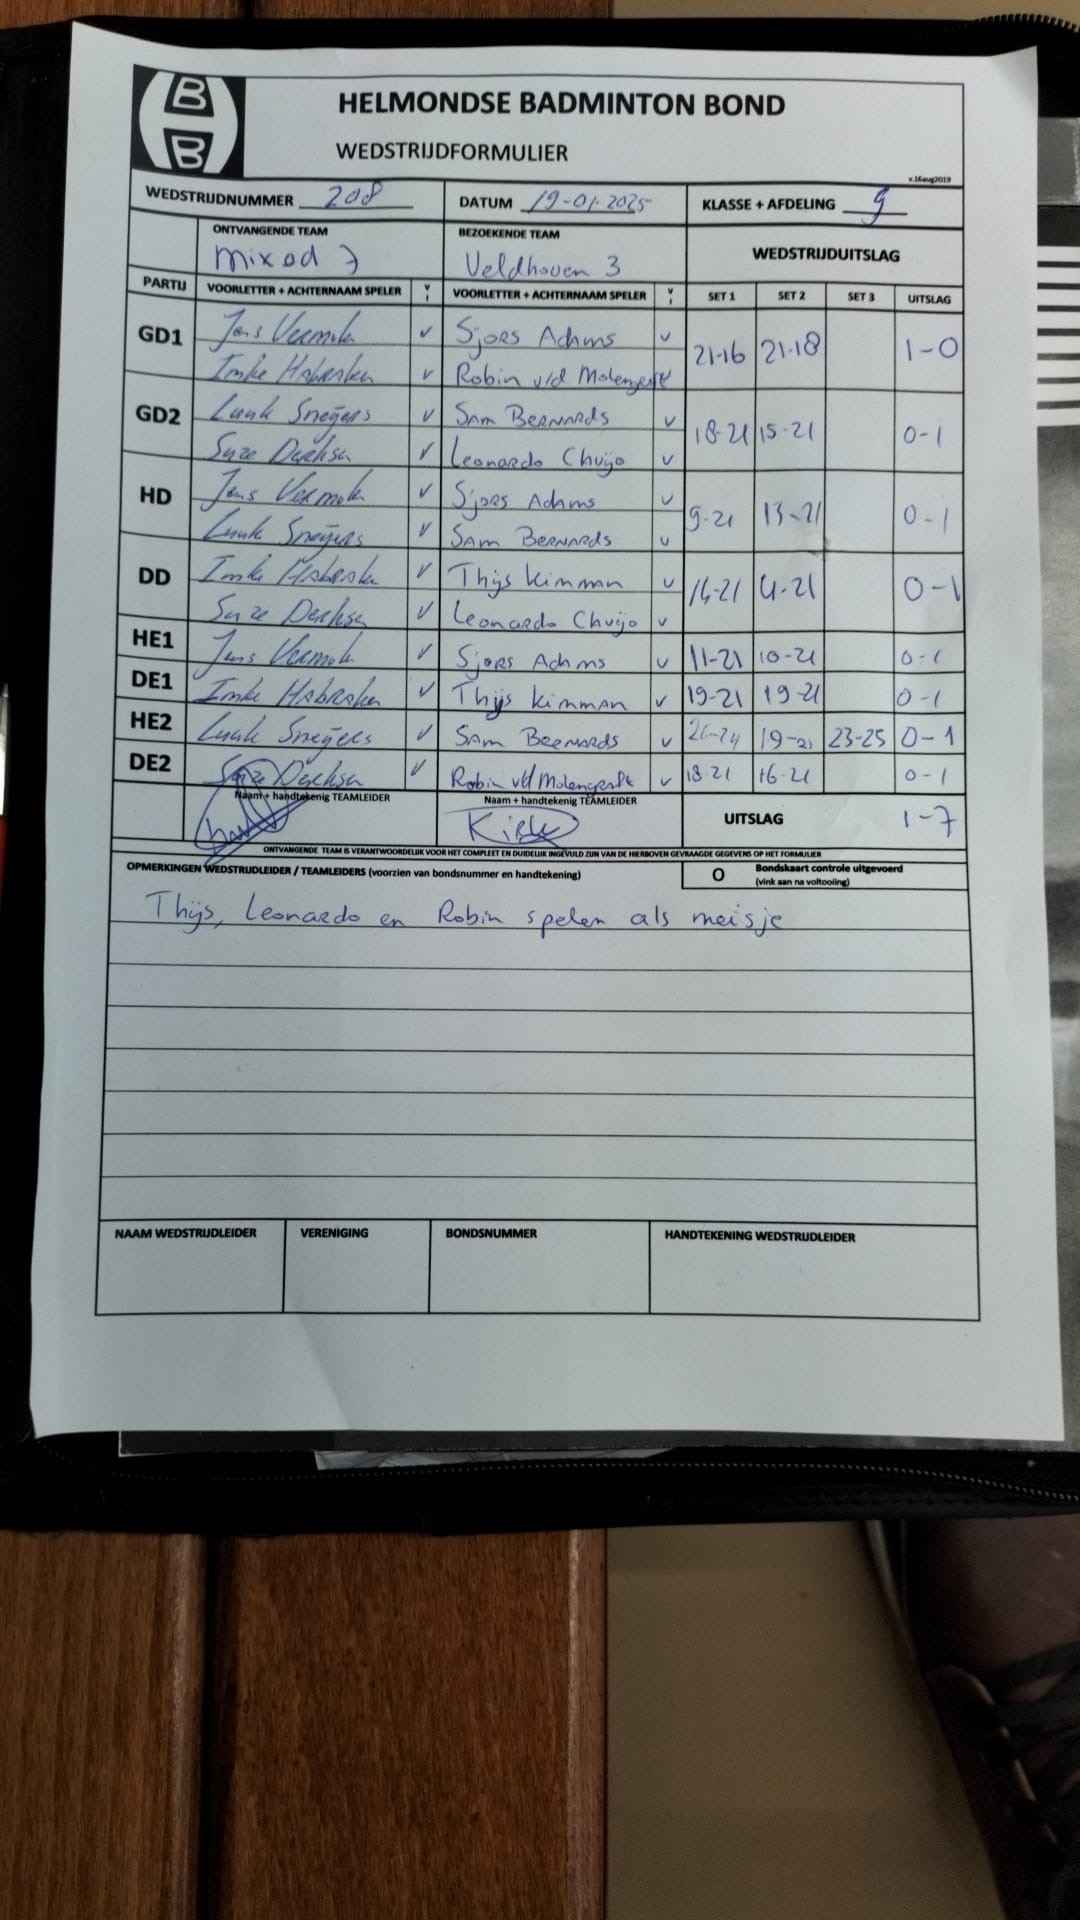 HELMONDSE BADMINTON BOND
WEDSTRIJDFORMULIER
v.16aug2019
WEDSTRIJDNUMMER 208 DATUM 19-01-2025 KLASSE + AFDELING 9
ONTVANGENDE TEAM BEZOEKENDE TEAM WEDSTRIJDUITSLAG
mixod 7 Veldhoven 3
PARTIJ VOORLETTER + ACHTERNAAM SPELER V VOORLETTER + ACHTERNAAM SPELER V SET 1 SET 2 SET 3 UITSLAG
GD1 Jens v Sjors Adams v 21-16 21-18 1-0
Imke Habraken v Robin v/d Molengraft
GD2 Luuk Sneijers v Sam Bernards v 18-21 15-21 0-1
Suze Derksen v Leonardo Chuijo v
HD Jens v Sjors Adams v 9-21 13-21 0-1
Luuk Sneijers v Sam Bernards v
DD Imke Habraken v Thijs Kimman v 14-21 4-21 0-1
Suze Derksen v Leonardo Chuijo v
HE1 Jens v Sjors Adams v 11-21 10-21 0-1
DE1 Imke Habraken v Thijs Kimman v 19-21 19-21 0-1
HE2 Luuk Sneijers v Sam Bernards v 19-21 23-25 0-1
DE2 Suze Derksen v Robin v/d Molengraft v 18-21 16-21 0-1
Naam + handtekenig TEAMLEIDER Naam + handtekenig TEAMLEIDER UITSLAG 1-7
ONTVANGENDE TEAM IS VERANTWOORDELIJK VOOR HET COMPLEET EN DUIDELIJK INGEVULD ZIJN VAN DE HIERBOVEN GEVRAAGDE GEGEVENS OP HET FORMULIER
OPMERKINGEN WEDSTRIJDLEIDER / TEAMLEIDERS (voorzien van bondsnummer en handtekening) O Bondskaart controle uitgevoerd
(vink aan na voltooiing)
Thijs, Leonardo en Robin spelen als meisje
NAAM WEDSTRIJDLEIDER VERENIGING BONDSNUMMER HANDTEKENING WEDSTRIJDLEIDER